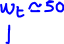 wt≃50